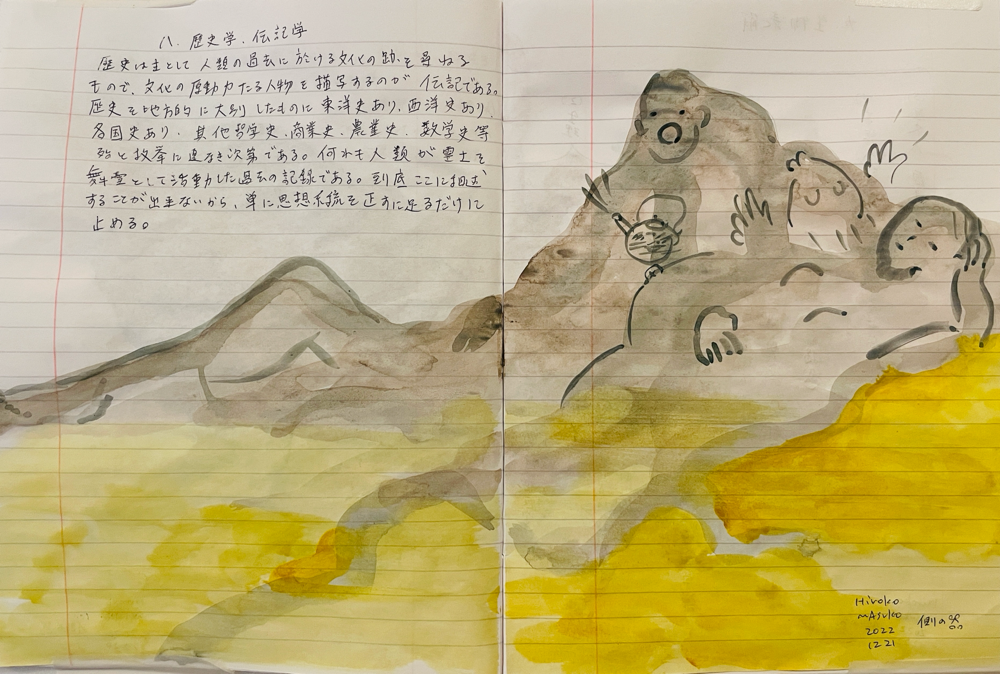 八、歴史学、伝記学
歴史は主として人類の過去に於ける文化の跡を尋ねる
もので、文化の原動力たる人物を描写するのが伝記である。
歴史を地方的に大別したものに東洋史あり、西洋史あり、
各国史あり、其他哲学史、商業史、農業史、数学史等
殆と枚挙に遑なき次第である。何れも人類が霊土を
舞台として活動した過去の記録である。到底ここに細述
することが出来ないから、単に思想系統を正すに足るだけに
止める。
Hiroko
MAsuko
2022
12 21
側の